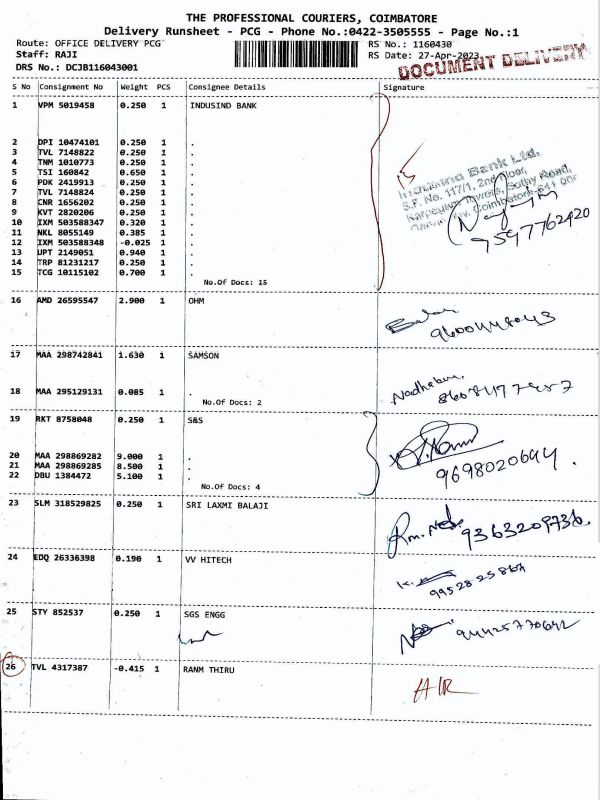 THE PROFESSIONAL COURIERS, COIMBATORE
Delivery Runsheet - PCG - Phone No.:0422-3505555 - Page No.:1
Route: OFFICE DELIVERY PCG RS No.: 1160430
Staff: RAJI RS Date: 27-Apr-2023
DRS No.: DCJB116043001 DOCUMENT DELIVERY
S No Consignment No Weight PCS Consignee Details Signature
1 VPM 5019458 0.250 1 INDUSIND BANK
2 DPI 10474101 0.250 1 .
3 TVL 7148822 0.250 1 .
4 TNM 1010773 0.250 1 .
5 TSI 160842 0.650 1 .
6 PDK 2419913 0.250 1 .
7 TVL 7148824 0.250 1 .
8 CNR 1656202 0.250 1 .
9 KVT 2820206 0.250 1 .
10 IXM 503588347 0.320 1 .
11 NKL 8055149 0.385 1 .
12 IXM 503588348 -0.025 1 .
13 UPT 2149051 0.940 1 .
14 TRP 81231217 0.250 1 .
15 TCG 10115102 0.700 1 .
No.Of Docs: 15
IndusInd Bank Ltd.
S.F. No. 117/1, 2nd Floor,
9597762920
16 AMD 26595547 2.900 1 OHM
17 MAA 298742841 1.630 1 SAMSON
18 MAA 295129131 0.085 1 .
No.Of Docs: 2
19 RKT 8758048 0.250 1 S&S
20 MAA 298869282 9.000 1 .
21 MAA 298869285 8.500 1 .
22 DBU 1384472 5.100 1 .
No.Of Docs: 4
9698020694.
23 SLM 318529825 0.250 1 SRI LAXMI BALAJI
9363209736.
24 EDQ 26336398 0.190 1 VV HITECH
25 STY 852537 0.250 1 SGS ENGG
26 TVL 4317387 -0.415 1 RANM THIRU